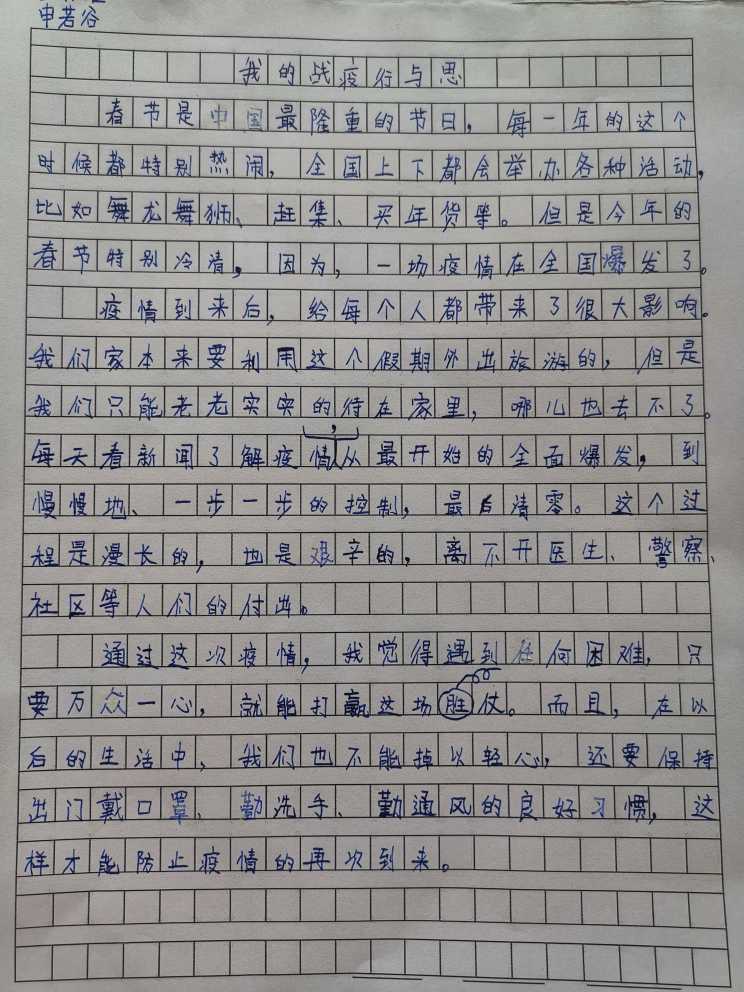 申若谷
我的战疫行与思
春节是中国最隆重的节日，每一年的这个
时候都特别热闹，全国上下都会举办各种活动，
比如舞龙舞狮、赶集、买年货等。但是今年的
春节特别冷清，因为，一场疫情在全国爆发了。
疫情到来后，给每个人都带来了很大影响。
我们家本来要利用这个假期外出旅游的，但是
我们只能老老实实的待在家里，哪儿也去不了。
每天看新闻了解疫情，从最开始的全面爆发，到
慢慢地、一步一步的控制，最后清零。这个过
程是漫长的，也是艰辛的，离不开医生、警察、
社区等人们的付出。
通过这次疫情，我觉得遇到任何困难，只
要万众一心，就能打赢这场胜仗。而且，在以
后的生活中，我们也不能掉以轻心，还要保持
出门戴口罩、勤洗手、勤通风的良好习惯，这
样才能防止疫情的再次到来。